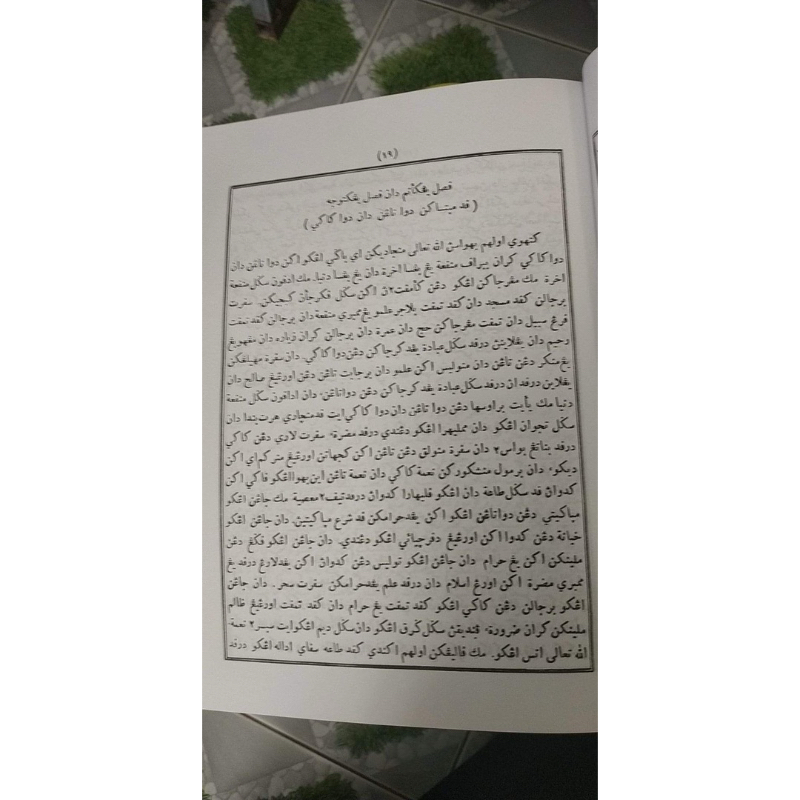 (١٩)
فصل يڠكأنم دان فصل يڠكتوجه
( ڤد مپتاكن دوا تاڠن دان دوا كاكي )
كتهوي اولهم بهواسڽ الله تعالى منجاديكن اي باڬي اڠكو اكن دوا تاڠن دان
دوا كاكي كران ببراڤ منفعة يڠ بڠسا اخرة دان يڠ بڠسا دنيا. مك اداڤون سڬل منفعة
اخرة مك مڠرجاكن اڠكو دڠن كأمڤت٢ڽ اكن سڬل ڤكرجأن كبجيكن. سڤرت
برجالن كڤد مسجد دان كڤد تمڤت بلاجر علمو يڠ ممبري منفعة دان برجالن كڤد تمڤت
فرڠ سبيل دان تمڤت مڠرجاكن حج دان عمرة دان برجالن كران زيارة دان مڠهوبڠ
رحيم دان يڠلاينڽ درڤد سڬل عبادة يڠد كرجاكن دڠن دوا كاكي. دان سڤرة مهيلڠكن
يڠ منكر دڠن تاڠن دان منوليس اكن علمو دان برجابت تاڠن دڠن اورڠ٢ يڠ صالح دان
يڠلاين درڤدان درڤد سڬل عبادة يڠد كرجاكن دڠن دوا تاڠن. دان اداڤون سڬل منفعة
دنيا مك يأيت براوسها دڠن دوا تاڠن دان دوا كاكي ايت ڤد منچاري هرت بندا دان
سڬل تجوان اڠكو دان ممليهرا اڠكو دڠندي درڤد مضرة. سڤرت لاري دڠن كاكي
درڤد بناتڠ بواس٢ دان سڤرة منولق دڠن تاڠن اكن كجهاتن اورڠ يڠ مڠركم اي اكن
ديكو. دان برمول منشكوركن نعمة كاكي دان نعمة تاڠن اين بهوا اڠكو ڤاكي اكن
كدواڽ ڤد سڬل طاعة دان اڠكو ڤليهارا كدواڽ درڤد تيڤ٢ معصية مك جاڠن اڠكو
مپاكيتي دڠن دوا تاڠن اڠكو اكن يڠد حرامكن ڤد شرع مپاكيتيڽ. دان جاڠن اڠكو
خيانة دڠن كدوا اكن اورڠ يڠ دڤرچياءي اڠكو دڠندي. دان جاڠن اڠكو ڤڬڠ دڠن
ملينكن اكن يڠ حرام دان جاڠن اڠكو توليس دڠن كدواڽ اكن يڠد لارڠ درڤد يڠ
ممبري مضرة اكن اورڠ اسلام دان درڤد علم يڠد حرامكن سڤرت سحر. دان جاڠن
اڠكو برجالن دڠن كاكي اڠكو كڤد تمڤت يڠ حرام دان كڤد تمڤت اورڠ يڠ ظالم
ملينكن كران ضرورة. سڬل ڬرق اڠكو دان سڬل ديم اڠكو ايت نعمة
الله تعالى اتس اڠكو. مك ڤاليڠكن اولهم اكندي كڤد طاعة سڤاي اداله اڠكو درڤد